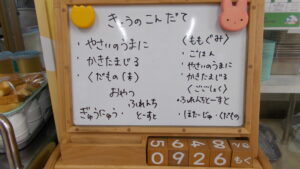 きょうのこんだて
・やさいのうまに
・かきたまじる
・くだもの
おやつ
ぎゅうにゅう・ふれんちとーすと
〈ももぐみ〉
・ごはん
・やさいのうまに
・かきたまじる
〈ごごしょく〉
・ふれんちとーすと
・くだもの